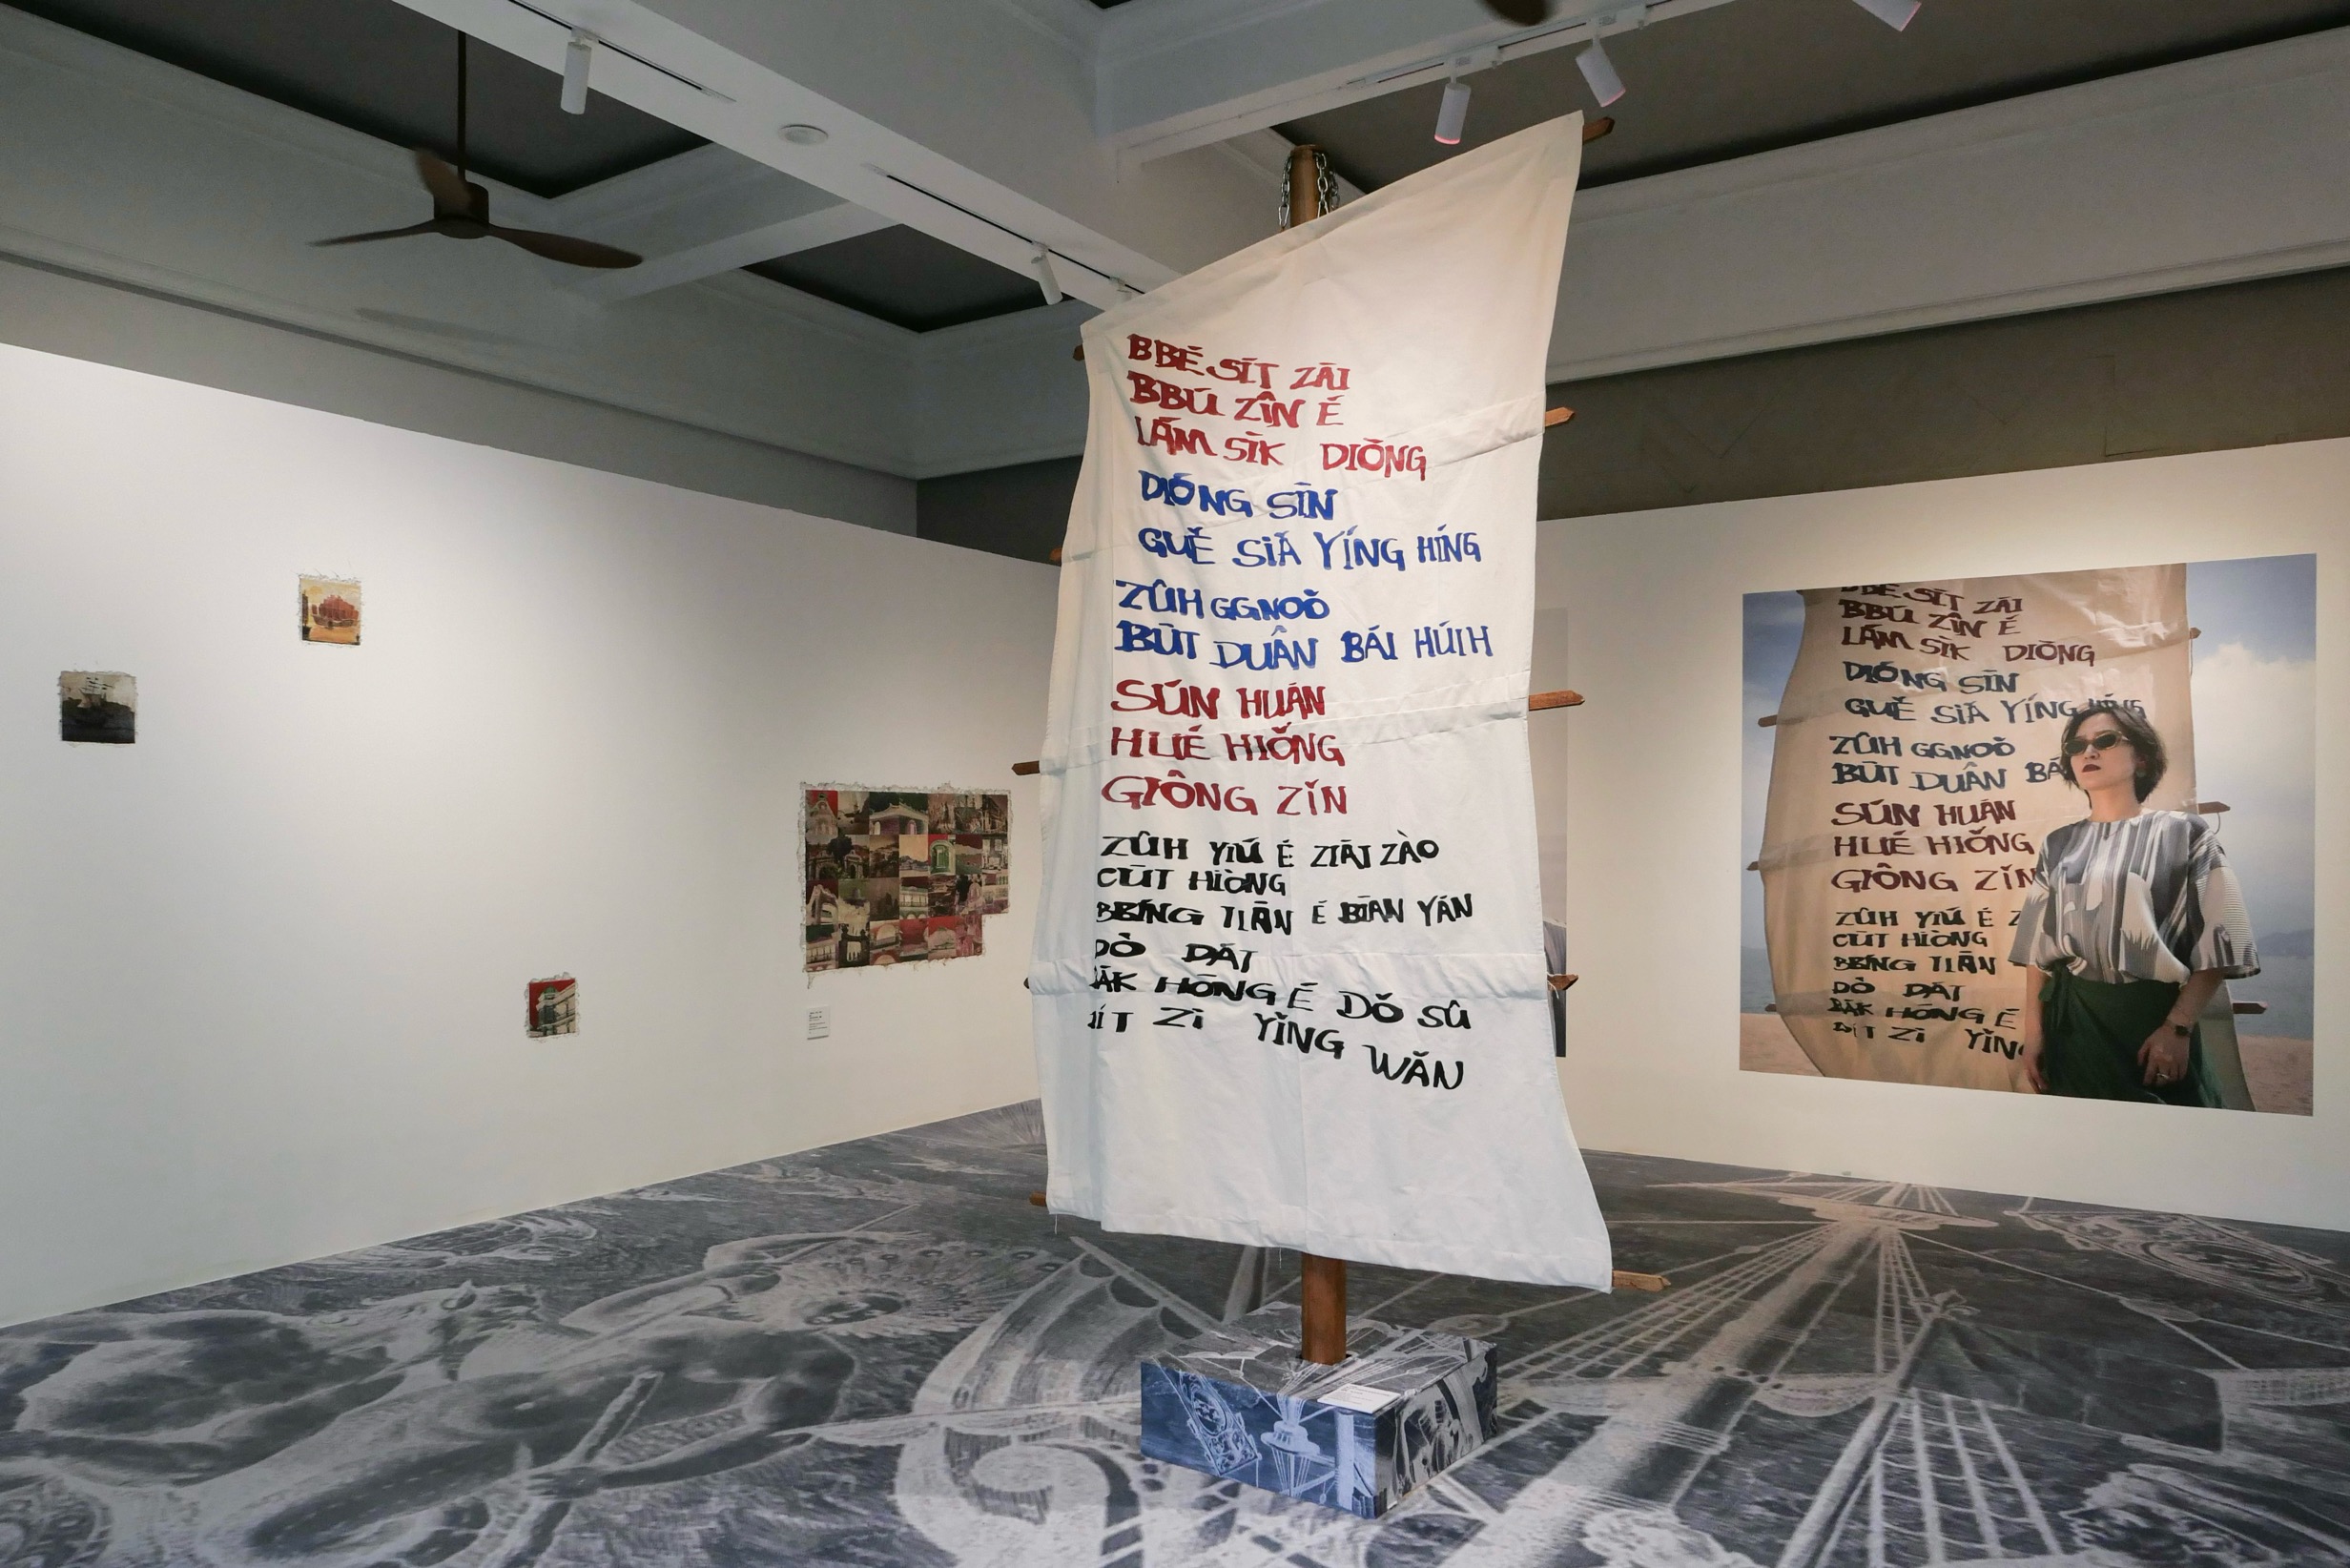 BBÉ SÍT ZÀI
BBÚ ZÎN É
LÁM SÌK DIÒNG
DIÓNG SĪN
GUĚ SIĂ YÍNG HÍNG
ZÛH GGNOÒ
BŪT DUÂN BÁI HÚIH
SÚN HUÁN
HUÉ HIǑNG
GIÔNG ZǏN
ZÛH YIÚ É ZIĀI ZÀO
CŪT HIÒNG
BBÍNG TIĀN É BIĀN YÁN
DÒ DÁT
BĀK HŌNG É DǑ SÛ
ZÌ YÌNG WǍN
BBÉ SÍT ZÀI
BBÚ ZÎN É
LÁM SÌK DIÒNG
DIÓNG SĪN
GUĚ SIĂ YÍNG HÍNG
ZÛH GGNOÒ
BŪT DUÂN BÁ
SÚN HUÁN
HUÉ HIǑNG
GIÔNG ZǏN
ZÛH YIÚ É Z
CŪT HIÒNG
BBÍNG TIĀN
DÒ DÁT
BĀK HŌNG É
ZÌ YÌNG